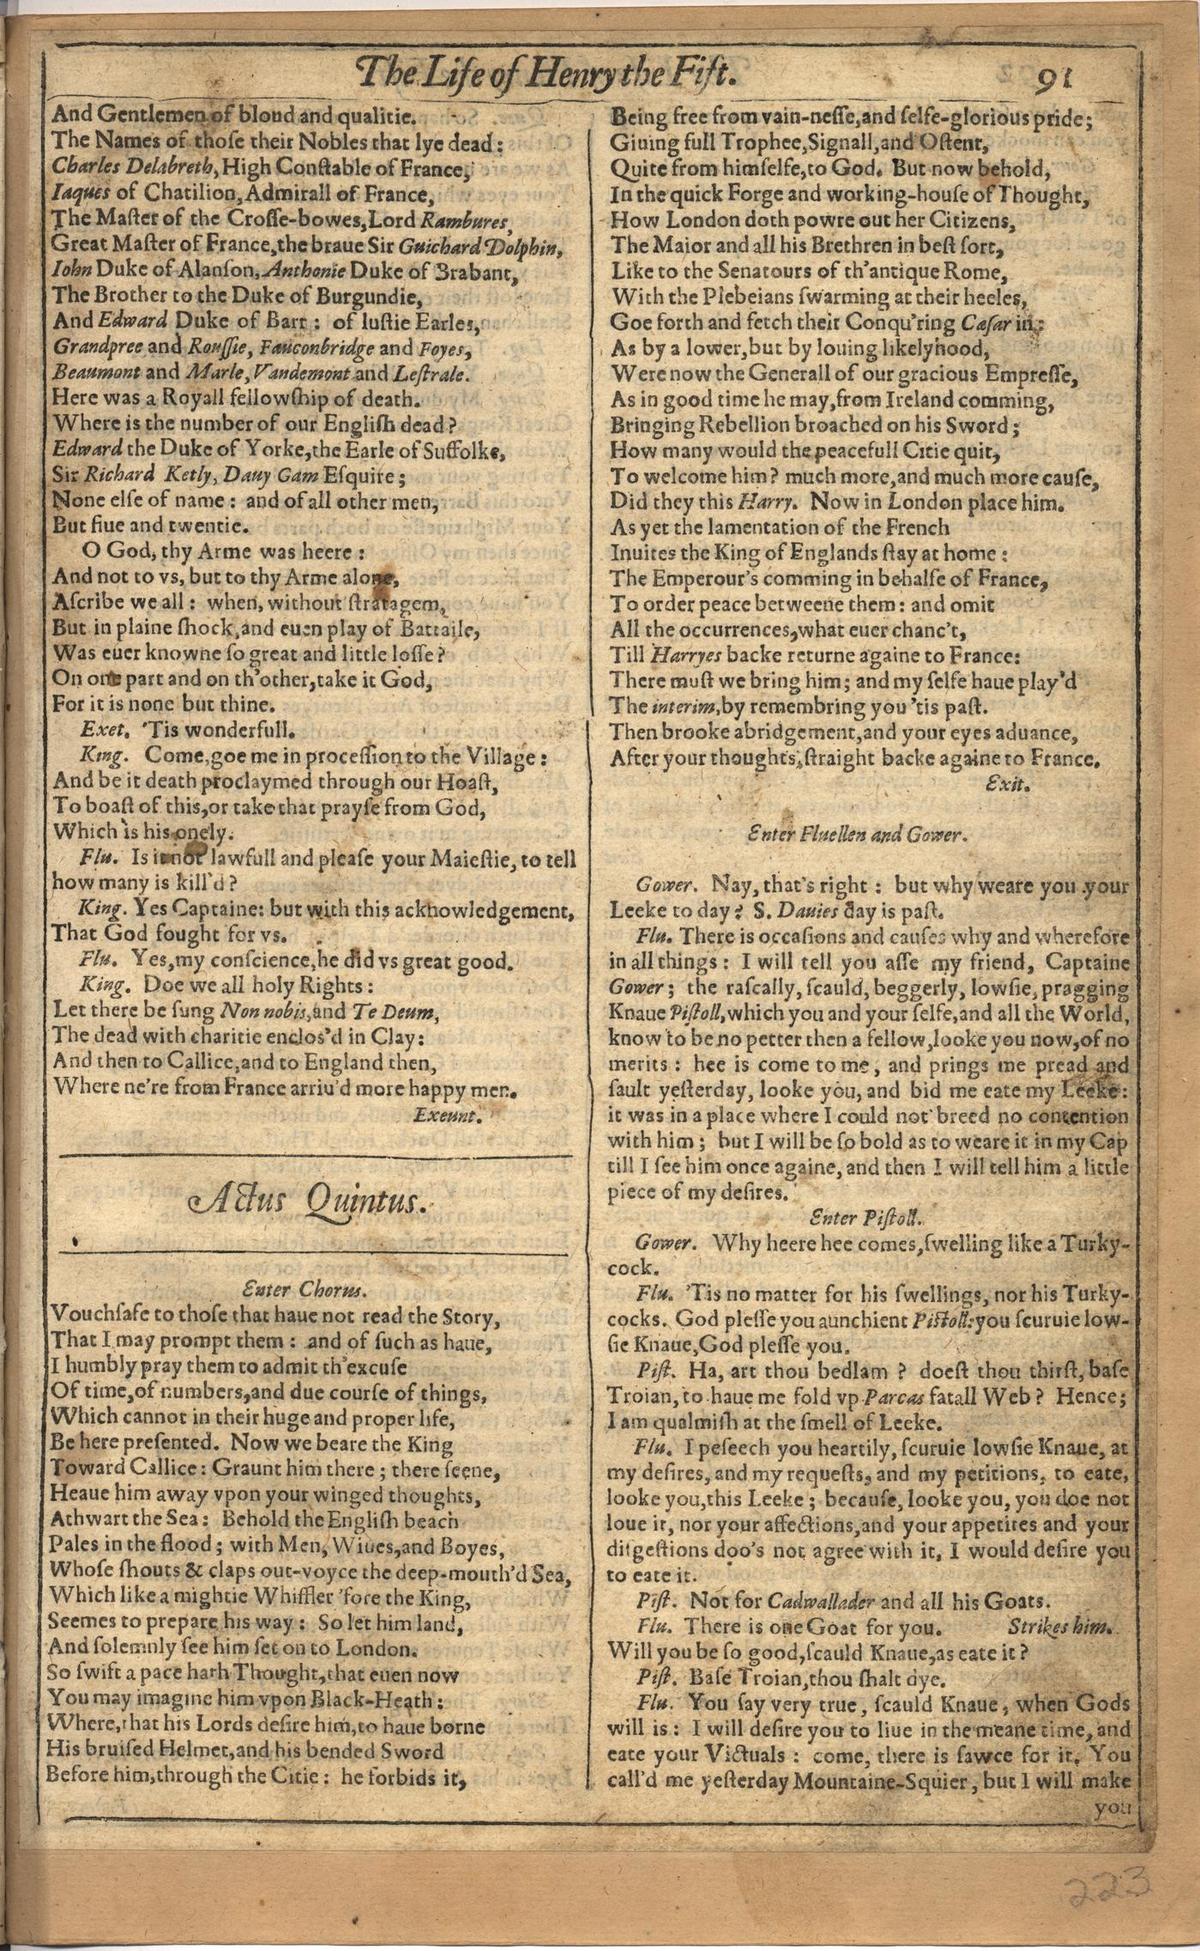 The Life of Henry the Fift.
91
And Gentlemen of bloud and qualitie.
The Names of those their Nobles that lye dead:
Charles Delabreth, High Constable of France,
Iaques of Chatilion, Admirall of France,
The Master of the Crosse-bowes, Lord Rambures,
Great Master of France, the braue Sir Guichard Dolphin,
Iohn Duke of Alanson, Anthonie Duke of Brabant,
The Brother to the Duke of Burgundie,
And Edward Duke of Barr: of lustie Earles,
Grandpree and Roussie, Fauconbridge and Foyes,
Beaumont and Marle, Vandemont and Lestrale.
Here was a Royall fellowship of death.
Where is the number of our English dead?
Edward the Duke of Yorke, the Earle of Suffolke,
Sir Richard Ketly, Dauy Gam Esquire;
None else of name: and of all other men,
But fiue and twentie.
O God, thy Arme was heere:
And not to vs, but to thy Arme alone,
Ascribe we all: when, without stratagem,
But in plaine shock, and euen play of Battaile,
Was euer knowne so great and little losse?
On one part and on th'other, take it God,
For it is none but thine.
Exet. 'Tis wonderfull.
King. Come, goe me in procession to the Village:
And be it death proclaymed through our Hoast,
To boast of this, or take that prayse from God,
Which is his onely.
Flu. Is it not lawfull and please your Maiestie, to tell
how many is kill'd?
King. Yes Captaine: but with this acknowledgement,
That God fought for vs.
Flu. Yes, my conscience, he did vs great good.
King. Doe we all holy Rights:
Let there be sung Non nobis, and Te Deum,
The dead with charitie enclos'd in Clay:
And then to Callice, and to England then,
Where ne're from France arriu'd more happy men.
Exeunt.
Actus Quintus.
Enter Chorus.
Vouchsafe to those that haue not read the Story,
That I may prompt them: and of such as haue,
I humbly pray them to admit th'excuse
Of time, of numbers, and due course of things,
Which cannot in their huge and proper life,
Be here presented. Now we beare the King
Toward Callice: Graunt him there; there seene,
Heaue him away vpon your winged thoughts,
Athwart the Sea: Behold the English beach
Pales in the flood; with Men, Wiues, and Boyes,
Whose shouts & claps out-voyce the deep-mouth'd Sea,
Which like a mightie Whiffler 'fore the King,
Seemes to prepare his way: So let him land,
And solemnly see him set on to London.
So swift a pace hath Thought, that euen now
You may imagine him vpon Black-Heath:
Where, that his Lords desire him, to haue borne
His bruised Helmet, and his bended Sword
Before him, through the Citie: he forbids it,
Being free from vain-nesse, and selfe-glorious pride;
Giuing full Trophee, Signall, and Ostent,
Quite from himselfe, to God. But now behold,
In the quick Forge and working-house of Thought,
How London doth powre out her Citizens,
The Maior and all his Brethren in best sort,
Like to the Senatours of th'antique Rome,
With the Plebeians swarming at their heeles,
Goe forth and fetch their Conqu'ring Cæsar in:
As by a lower, but by louing likelyhood,
Were now the Generall of our gracious Empresse,
As in good time he may, from Ireland comming,
Bringing Rebellion broached on his Sword;
How many would the peacefull Citie quit,
To welcome him? much more, and much more cause,
Did they this Harry. Now in London place him.
As yet the lamentation of the French
Inuites the King of Englands stay at home:
The Emperour's comming in behalfe of France,
To order peace betweene them: and omit
All the occurrences, what euer chanc't,
Till Harryes backe returne againe to France:
There must we bring him; and my selfe haue play'd
The interim, by remembring you 'tis past.
Then brooke abridgement, and your eyes aduance,
After your thoughts, straight backe againe to France.
Exit.
Enter Fluellen and Gower.
Gower. Nay, that's right: but why weare you your
Leeke to day? S. Dauies day is past.
Flu. There is occasions and causes why and wherefore
in all things: I will tell you asse my friend, Captaine
Gower; the rascally, scauld, beggerly, lowsie, pragging
Knaue Pistoll, which you and your selfe, and all the World,
know to be no petter then a fellow, looke you now, of no
merits: hee is come to me, and prings me pread and
sault yesterday, looke you, and bid me eate my Leeke:
it was in a place where I could not breed no contention
with him; but I will be so bold as to weare it in my Cap
till I see him once againe, and then I will tell him a little
piece of my desires.
Enter Pistoll.
Gower. Why heere hee comes, swelling like a Turky-
cock.
Flu. 'Tis no matter for his swellings, nor his Turky-
cocks. God plesse you aunchient Pistoll: you scuruie low-
sie Knaue, God plesse you.
Pist. Ha, art thou bedlam? doest thou thirst, base
Troian, to haue me fold vp Parcas fatall Web? Hence;
I am qualmish at the smell of Leeke.
Flu. I peseech you heartily, scuruie lowsie Knaue, at
my desires, and my requests, and my petitions, to eate,
looke you, this Leeke; because, looke you, you doe not
loue it, nor your affections, and your appetites and your
disgestions doo's not agree with it, I would desire you
to eate it.
Pist. Not for Cadwallader and all his Goats.
Flu. There is one Goat for you. Strikes him.
Will you be so good, scauld Knaue, as eate it?
Pist. Base Troian, thou shalt dye.
Flu. You say very true, scauld Knaue, when Gods
will is: I will desire you to liue in the meane time, and
eate your Victuals: come, there is sawce for it. You
call'd me yesterday Mountaine-Squier, but I will make
you
223